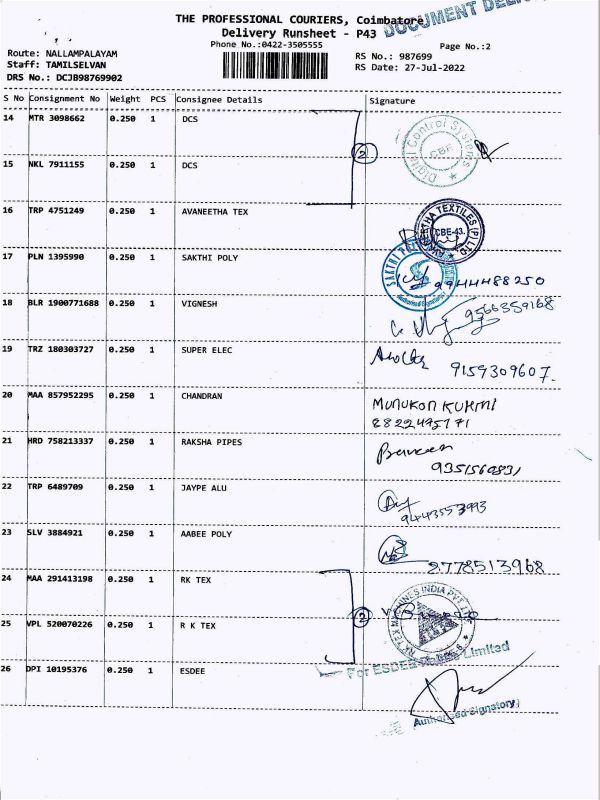 THE PROFESSIONAL COURIERS, Coimbatore
DOCUMENT
Delivery Runsheet - P43
Phone No.:0422-3505555
Page No.:2
Route: NALLAMPALAYAM
RS No.: 987699
Staff: TAMILSELVAN
RS Date: 27-Jul-2022
DRS No.: DCJB98769902
S No Consignment No Weight PCS Consignee Details Signature
14 MTR 3098662 0.250 1 DCS
2
Digital Control Systems
CBE
15 NKL 7911155 0.250 1 DCS
16 TRP 4751249 0.250 1 AVANEETHA TEX
AVANEETHA TEXTILES (P) LTD
CBE-43.
17 PLN 1395990 0.250 1 SAKTHI POLY
SAKTHI
Authorised Signatory
9944488250
18 BLR 1900771688 0.250 1 VIGNESH
9566359168
19 TRZ 180303727 0.250 1 SUPER ELEC
9159309607.
20 MAA 857952295 0.250 1 CHANDRAN
8822495171
21 HRD 758213337 0.250 1 RAKSHA PIPES
22 TRP 6489709 0.250 1 JAYPE ALU
9443553993
23 SLV 3884921 0.250 1 AABEE POLY
24 MAA 291413198 0.250 1 RK TEX
2
RK TEX MACHINES INDIA PVT LTD
25 VPL 520070226 0.250 1 R K TEX
26 DPI 10195376 0.250 1 ESDEE
For ESDEE Limited
Authorised Signatory